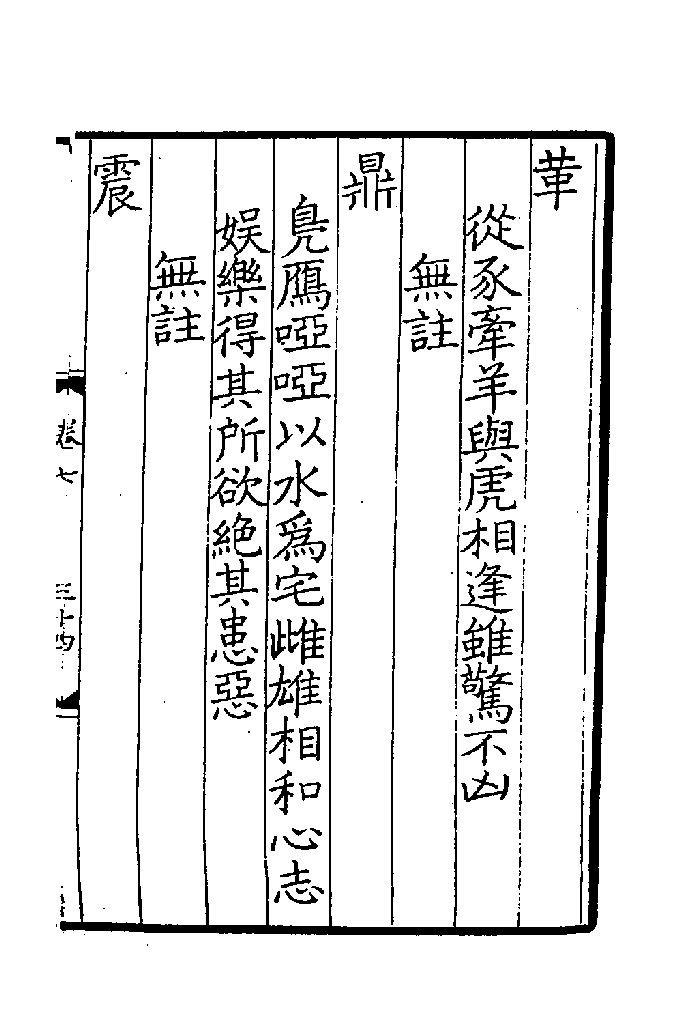 革
從豕牽羊與虎相逢雖驚不凶
無註
鼎
鳧鴈啞啞以水爲宅雌雄相和心志
娛樂得其所欲絶其患惡
無註
震
卷七
三十四